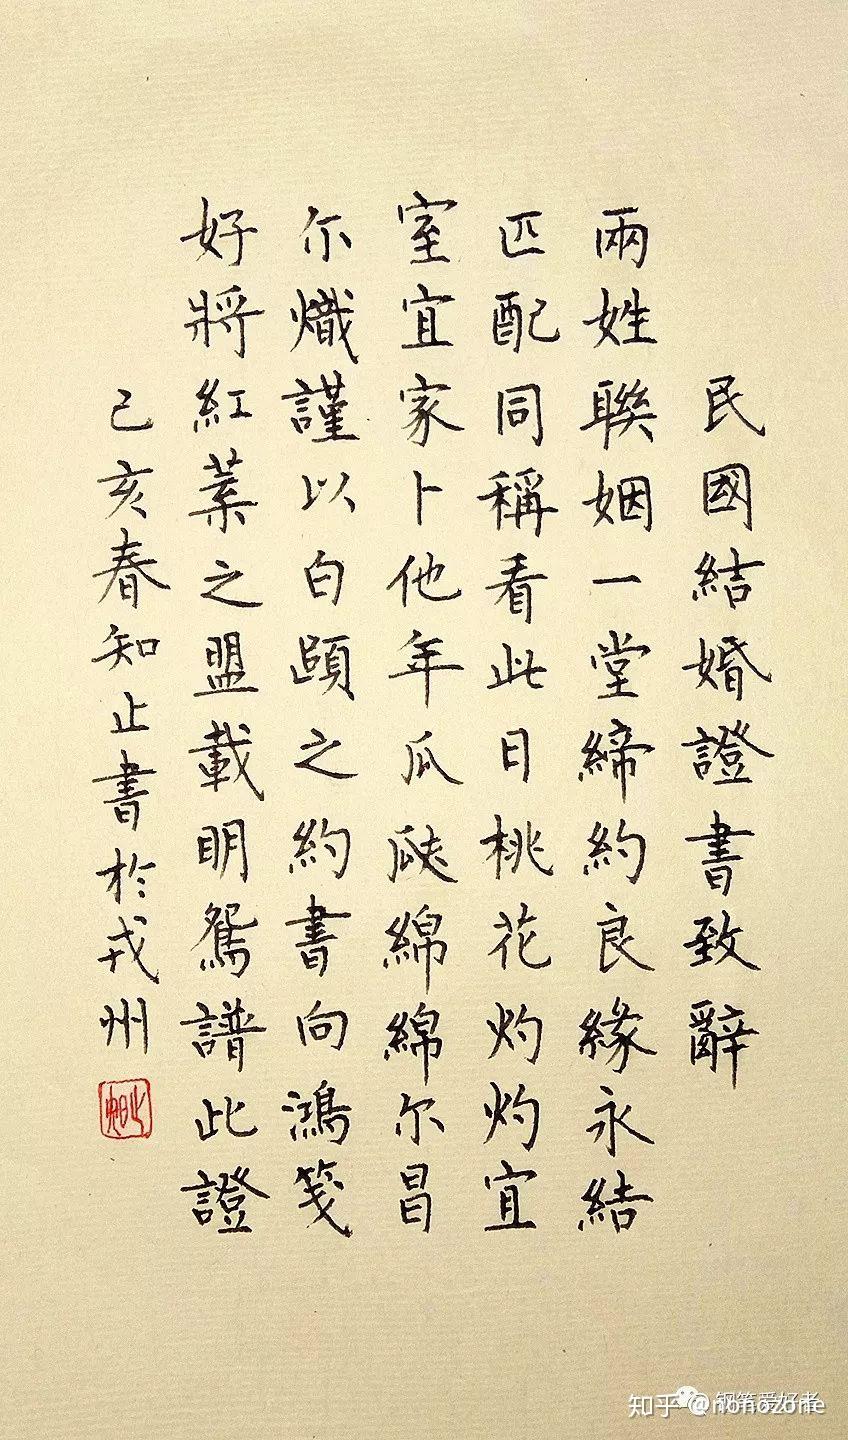 民國結婚證書致辭
兩姓聯姻一堂締約良緣永結
匹配同稱看此日桃花灼灼宜
室宜家卜他年瓜瓞綿綿尔昌
尔熾謹以白頭之約書向鴻箋
好將紅葉之盟載明鴛譜此證
己亥春知止書於戎州
知止
钢笔爱好者
知乎 @nonozone